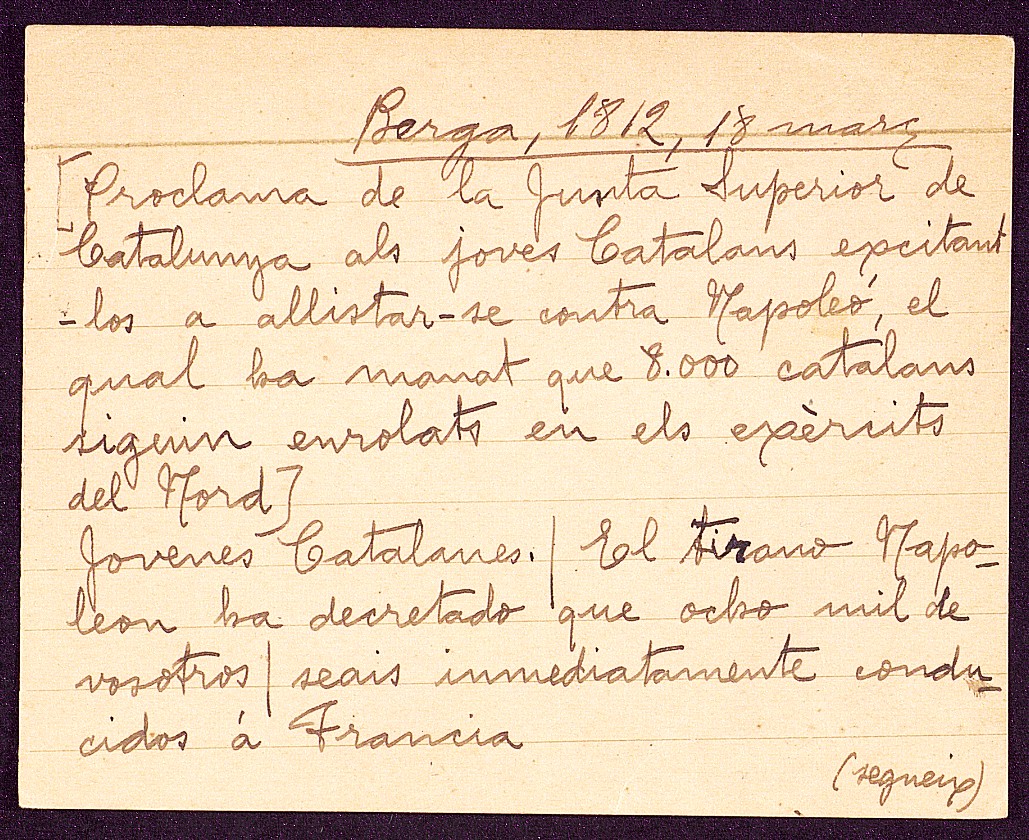 Berga, 1812, 18 març
[Proclama de la Junta Superior de
Catalunya als joves Catalans excitant
-los a allistar-se contra Napoleó, el
qual ha manat que 8.000 catalans
siguin enrolats en els exèrcits
del Nord]
Jovenes Catalanes.| El tirano Napo-
leon ha decretado que ocho mil de
vosotros| seais inmediatamente condu-
cidos á Francia
(segueix)